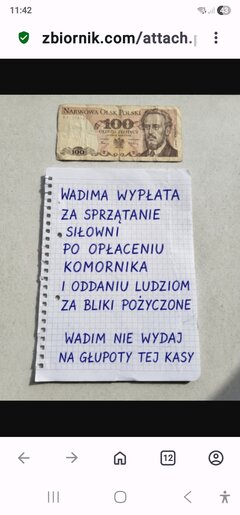 11:42
43
zbiornik.com/attach.p
NARODOWY BANK POLSKI
100
STO ZŁOTYCH
100
WADIMA WYPŁATA
ZA SPRZĄTANIE
SIŁOWNI
PO OPŁACENIU
KOMORNIKA
I ODDANIU LUDZIOM
ZA BLIKI POŻYCZONE
WADIM NIE WYDAJ
NA GŁUPOTY TEJ KASY
12